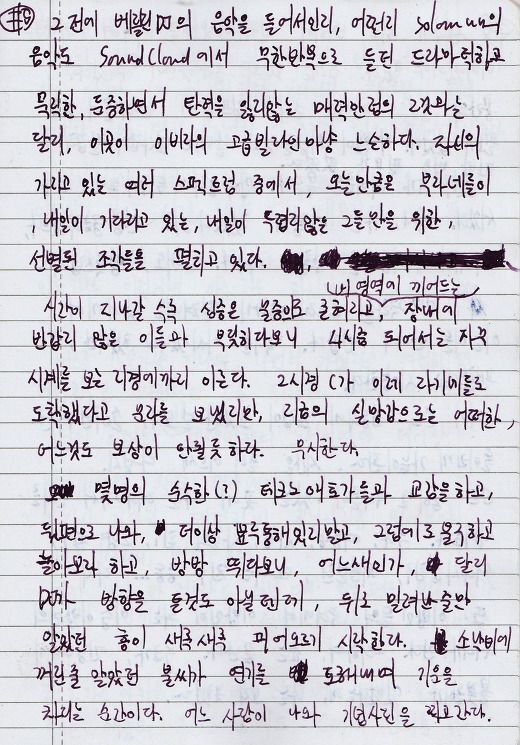 #9 2전에 베를린 DJ의 음악을 들어서인지, 어떤지 solomun의
음악도 SoundCloud에서 무한반복으로 듣던 드라마틱하고
묵직한, 둔중하면서 탄력을 잃지않는 매력만점의 그것과는
달리, 이곳이 이비자의 고급빌라인마냥 느슨하다. 자신의
가지고 있는 여러 스펙트럼 중에서, 오늘만큼은 부라네들이
, 내일이 기다리고 있는, 내일이 두렵지않은 그들만을 위한,
선별된 조각들을 펼치고 있다.
내 영역에 끼어드는
시간이 지나갈 수록 심증은 물증으로 굳혀지고 장내에
반갑지 않은 이들과 부딪히다보니 4시쯤 되어서는 자꾸
시계를 보는 지경에까지 이른다. 2시경 C가 이제 라기비들로
도착했다고 문자를 보냈지만, 지금의 실망감으로는 어떠한,
어느것도 보상이 안될 듯하다. 무시한다.
몇명의 순수한(?) 테크노애호가들과 교감을 하고,
뒷편으로 나와, 더이상 묘륵통해있지말고, 그럼에도 불구하고
놀아보자 하고, 방방 뛰다보니, 어느새인가 달리
DJ가 방향을 튼것도 아닐텐데, 뒤로 밀려난줄만
알았던 흥이 새록새록 피어오르기 시작한다. 소낙비에
꺼진줄 알았던 불씨가 연기를 토해내며 기운을
차리는 순간이다. 어느 사람이 나와 기념사진을 찍고간다.